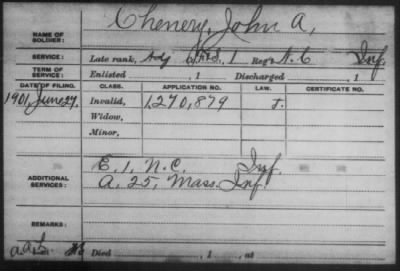 NAME OF SOLDIER: Chenery, John A.
SERVICE: Late rank, Adj F.&S., 1 Reg't N.C Inf.
TERM OF SERVICE: Enlisted , 1 Discharged , 1
DATE OF FILING. CLASS. APPLICATION NO. LAW. CERTIFICATE NO.
1901, June 27. Invalid, 1,270,879 J.
Widow,
Minor,
ADDITIONAL SERVICES: E, 1, N.C. Inf.
A, 25, Mass. Inf.
REMARKS:
Died , 1 , at